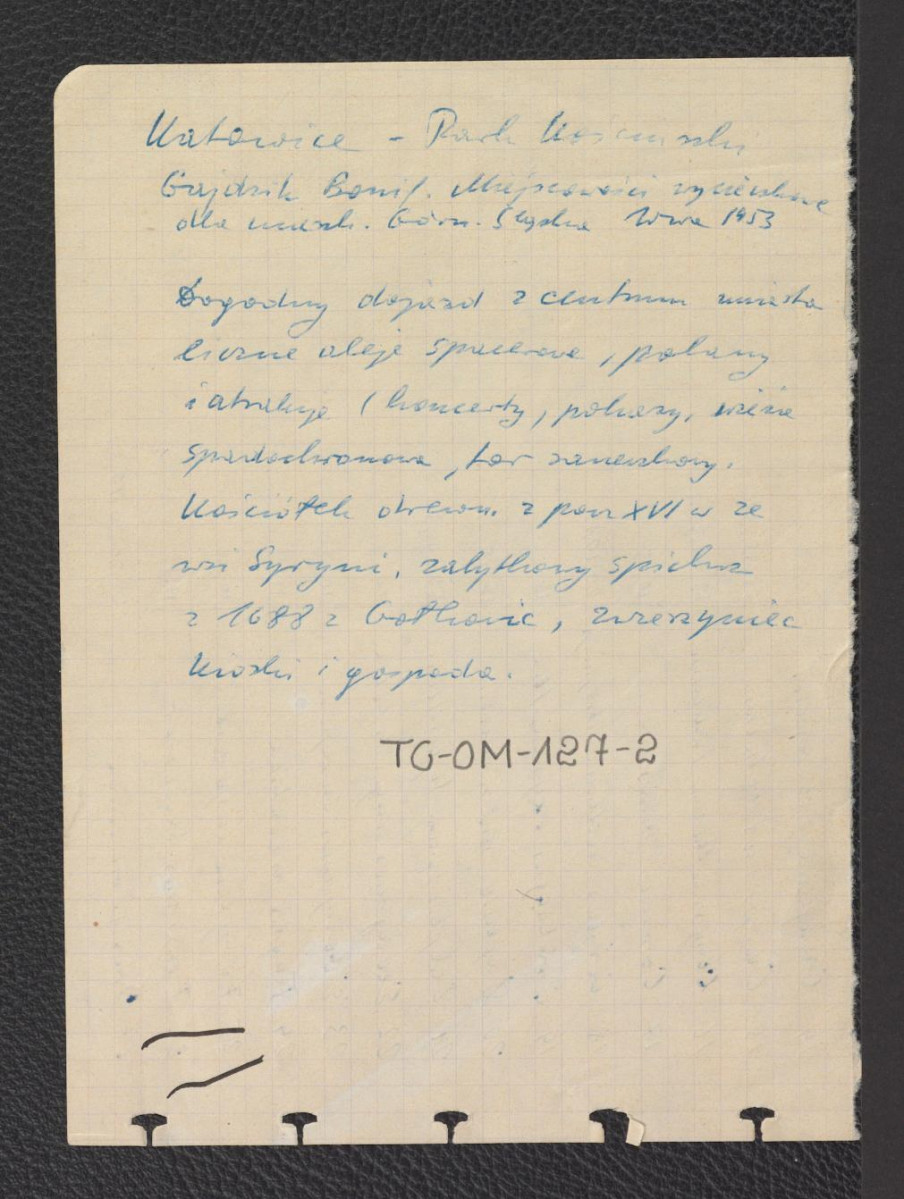 Katowice - Park Kościuszki
Gajdzik Bonif. Miejscowości wycieczkowe
dla mieszk. Górn. Śląska W-wa 1953
Dogodny dojazd z centrum miasta
liczne aleje spacerowe, polany
i atrakcje (koncerty, pokazy, wieża
spadochronowa, tor saneczkowy.
Kościółek drewn. z pocz XVI w ze
wsi Syryni, zabytkowy spichrz
z 1688 z Gotkowic, zwierzyniec
kioski i gospoda.
TG-OM-127-2